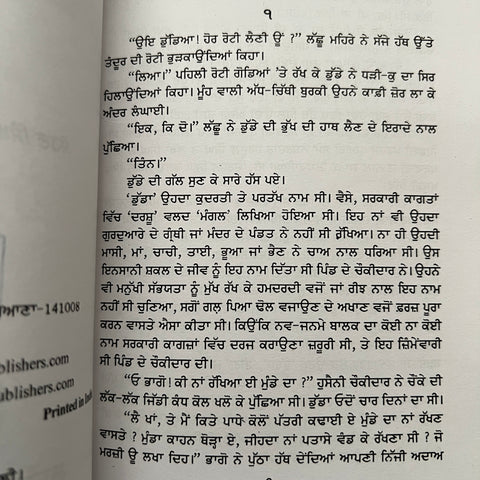 ੧
“ਉਇ ਡੁੱਡਿਆ! ਹੋਰ ਰੋਟੀ ਲੈਣੀ ਊਂ ?” ਲੱਛੂ ਮਹਿਰੇ ਨੇ ਸੱਜੇ ਹੱਥ ਉੱਤੇ
ਤੰਦੂਰ ਦੀ ਰੋਟੀ ਭੁੜਕਾਉਂਦਿਆਂ ਕਿਹਾ।
“ਲਿਆ।” ਪਹਿਲੀ ਰੋਟੀ ਗੋਡਿਆਂ ’ਤੇ ਰੱਖ ਕੇ ਡੁੱਡੇ ਨੇ ਧੜੀ-ਕੁ ਦਾ ਸਿਰ
ਹਿਲਾਉਂਦਿਆਂ ਕਿਹਾ। ਮੂੰਹ ਵਾਲੀ ਅੱਧ-ਚਿੱਥੀ ਬੁਰਕੀ ਉਹਨੇ ਕਾਫ਼ੀ ਜ਼ੋਰ ਲਾ ਕੇ
ਅੰਦਰ ਲੰਘਾਈ।
“ਇਕ, ਕਿ ਦੋ।” ਲੱਛੂ ਨੇ ਡੁੱਡੇ ਦੀ ਭੁੱਖ ਦੀ ਹਾਥ ਲੈਣ ਦੇ ਇਰਾਦੇ ਨਾਲ
ਪੁੱਛਿਆ।
“ਤਿੰਨ।”
ਡੁੱਡੇ ਦੀ ਗੱਲ ਸੁਣ ਕੇ ਸਾਰੇ ਹੱਸ ਪਏ।
‘ਡੁੱਡਾ’ ਉਹਦਾ ਕੁਦਰਤੀ ਤੇ ਪਰਤੱਖ ਨਾਮ ਸੀ। ਵੈਸੇ, ਸਰਕਾਰੀ ਕਾਗਤਾਂ
ਵਿੱਚ ‘ਦਰਸ਼ੂ’ ਵਲਦ ‘ਮੰਗਲ’ ਲਿਖਿਆ ਹੋਇਆ ਸੀ। ਇਹ ਨਾਂ ਵੀ ਉਹਦਾ
ਗੁਰਦੁਆਰੇ ਦੇ ਗ੍ਰੰਥੀ ਜਾਂ ਮੰਦਰ ਦੇ ਪੰਡਤ ਨੇ ਨਹੀਂ ਸੀ ਰੱਖਿਆ। ਨਾ ਹੀ ਉਹਦੀ
ਮਾਸੀ, ਮਾਂ, ਚਾਚੀ, ਤਾਈ, ਭੂਆ ਜਾਂ ਭੈਣ ਨੇ ਚਾਅ ਨਾਲ ਧਰਿਆ ਸੀ। ਉਸ
ਇਨਸਾਨੀ ਸ਼ਕਲ ਦੇ ਜੀਵ ਨੂੰ ਇਹ ਨਾਮ ਦਿੱਤਾ ਸੀ ਪਿੰਡ ਦੇ ਚੌਕੀਦਾਰ ਨੇ। ਉਹਨੇ
ਵੀ ਮਨੁੱਖੀ ਸੱਭਯਤਾ ਨੂੰ ਮੁੱਖ ਰੱਖ ਕੇ ਹਮਦਰਦੀ ਵਜੋਂ ਜਾਂ ਰੀਝ ਨਾਲ ਇਹ ਨਾਮ
ਨਹੀਂ ਸੀ ਚੁਣਿਆ, ਸਗੋਂ ਗਲ਼ ਪਿਆ ਢੋਲ ਵਜਾਉਣ ਦੇ ਅਖਾਣ ਵਜੋਂ ਫ਼ਰਜ਼ ਪੂਰਾ
ਕਰਨ ਵਾਸਤੇ ਐਸਾ ਕੀਤਾ ਸੀ। ਕਿਉਂਕਿ ਨਵ-ਜਨਮੇ ਬਾਲਕ ਦਾ ਕੋਈ ਨਾ ਕੋਈ
ਨਾਮ ਸਰਕਾਰੀ ਕਾਗਜ਼ਾਂ ਵਿੱਚ ਦਰਜ ਕਰਾਉਣਾ ਜ਼ਰੂਰੀ ਸੀ, ਤੇ ਇਹ ਜ਼ਿੰਮੇਂਵਾਰੀ
ਸੀ ਪਿੰਡ ਦੇ ਚੌਕੀਦਾਰ ਦੀ।
“ਓ ਭਾਗੋ! ਕੀ ਨਾਂ ਰੱਖਿਆ ਈ ਮੁੰਡੇ ਦਾ ?” ਹੁਸੈਨੀ ਚੌਕੀਦਾਰ ਨੇ ਚੌਂਕੇ ਦੀ
ਲੱਕ-ਲੱਕ ਜਿੱਡੀ ਕੰਧ ਕੋਲ ਖਲੋ ਕੇ ਪੁੱਛਿਆ ਸੀ। ਡੁੱਡਾ ਓਦੋਂ ਚਾਰ ਦਿਨਾਂ ਦਾ ਸੀ।
“ਲੈ ਖਾਂ, ਤੇ ਮੈਂ ਕਿਤੇ ਪਾਧੇ ਕੋਲੋਂ ਪੱਤਰੀ ਕਢਾਈ ਏ ਮੁੰਡੇ ਦਾ ਨਾਂ ਰੱਖਣ
ਵਾਸਤੇ ? ਮੁੰਡਾ ਕਾਹਨ ਥੋੜ੍ਹਾ ਏ, ਜੀਹਦਾ ਨਾਂ ਪਤਾਸੇ ਵੰਡ ਕੇ ਰੱਖਣਾ ਸੀ ? ਜੋ
ਮਰਜ਼ੀ ਊ ਲਖਾ ਦਿਹ।” ਭਾਗੋ ਨੇ ਪੁੱਠਾ ਹੱਥ ਦੇਂਦਿਆਂ ਆਪਣੀ ਨਿੱਜੀ ਅਦਾਅ
ਆਣਾ-141008
ublishers.com
ublishers.com
Printed in Ind